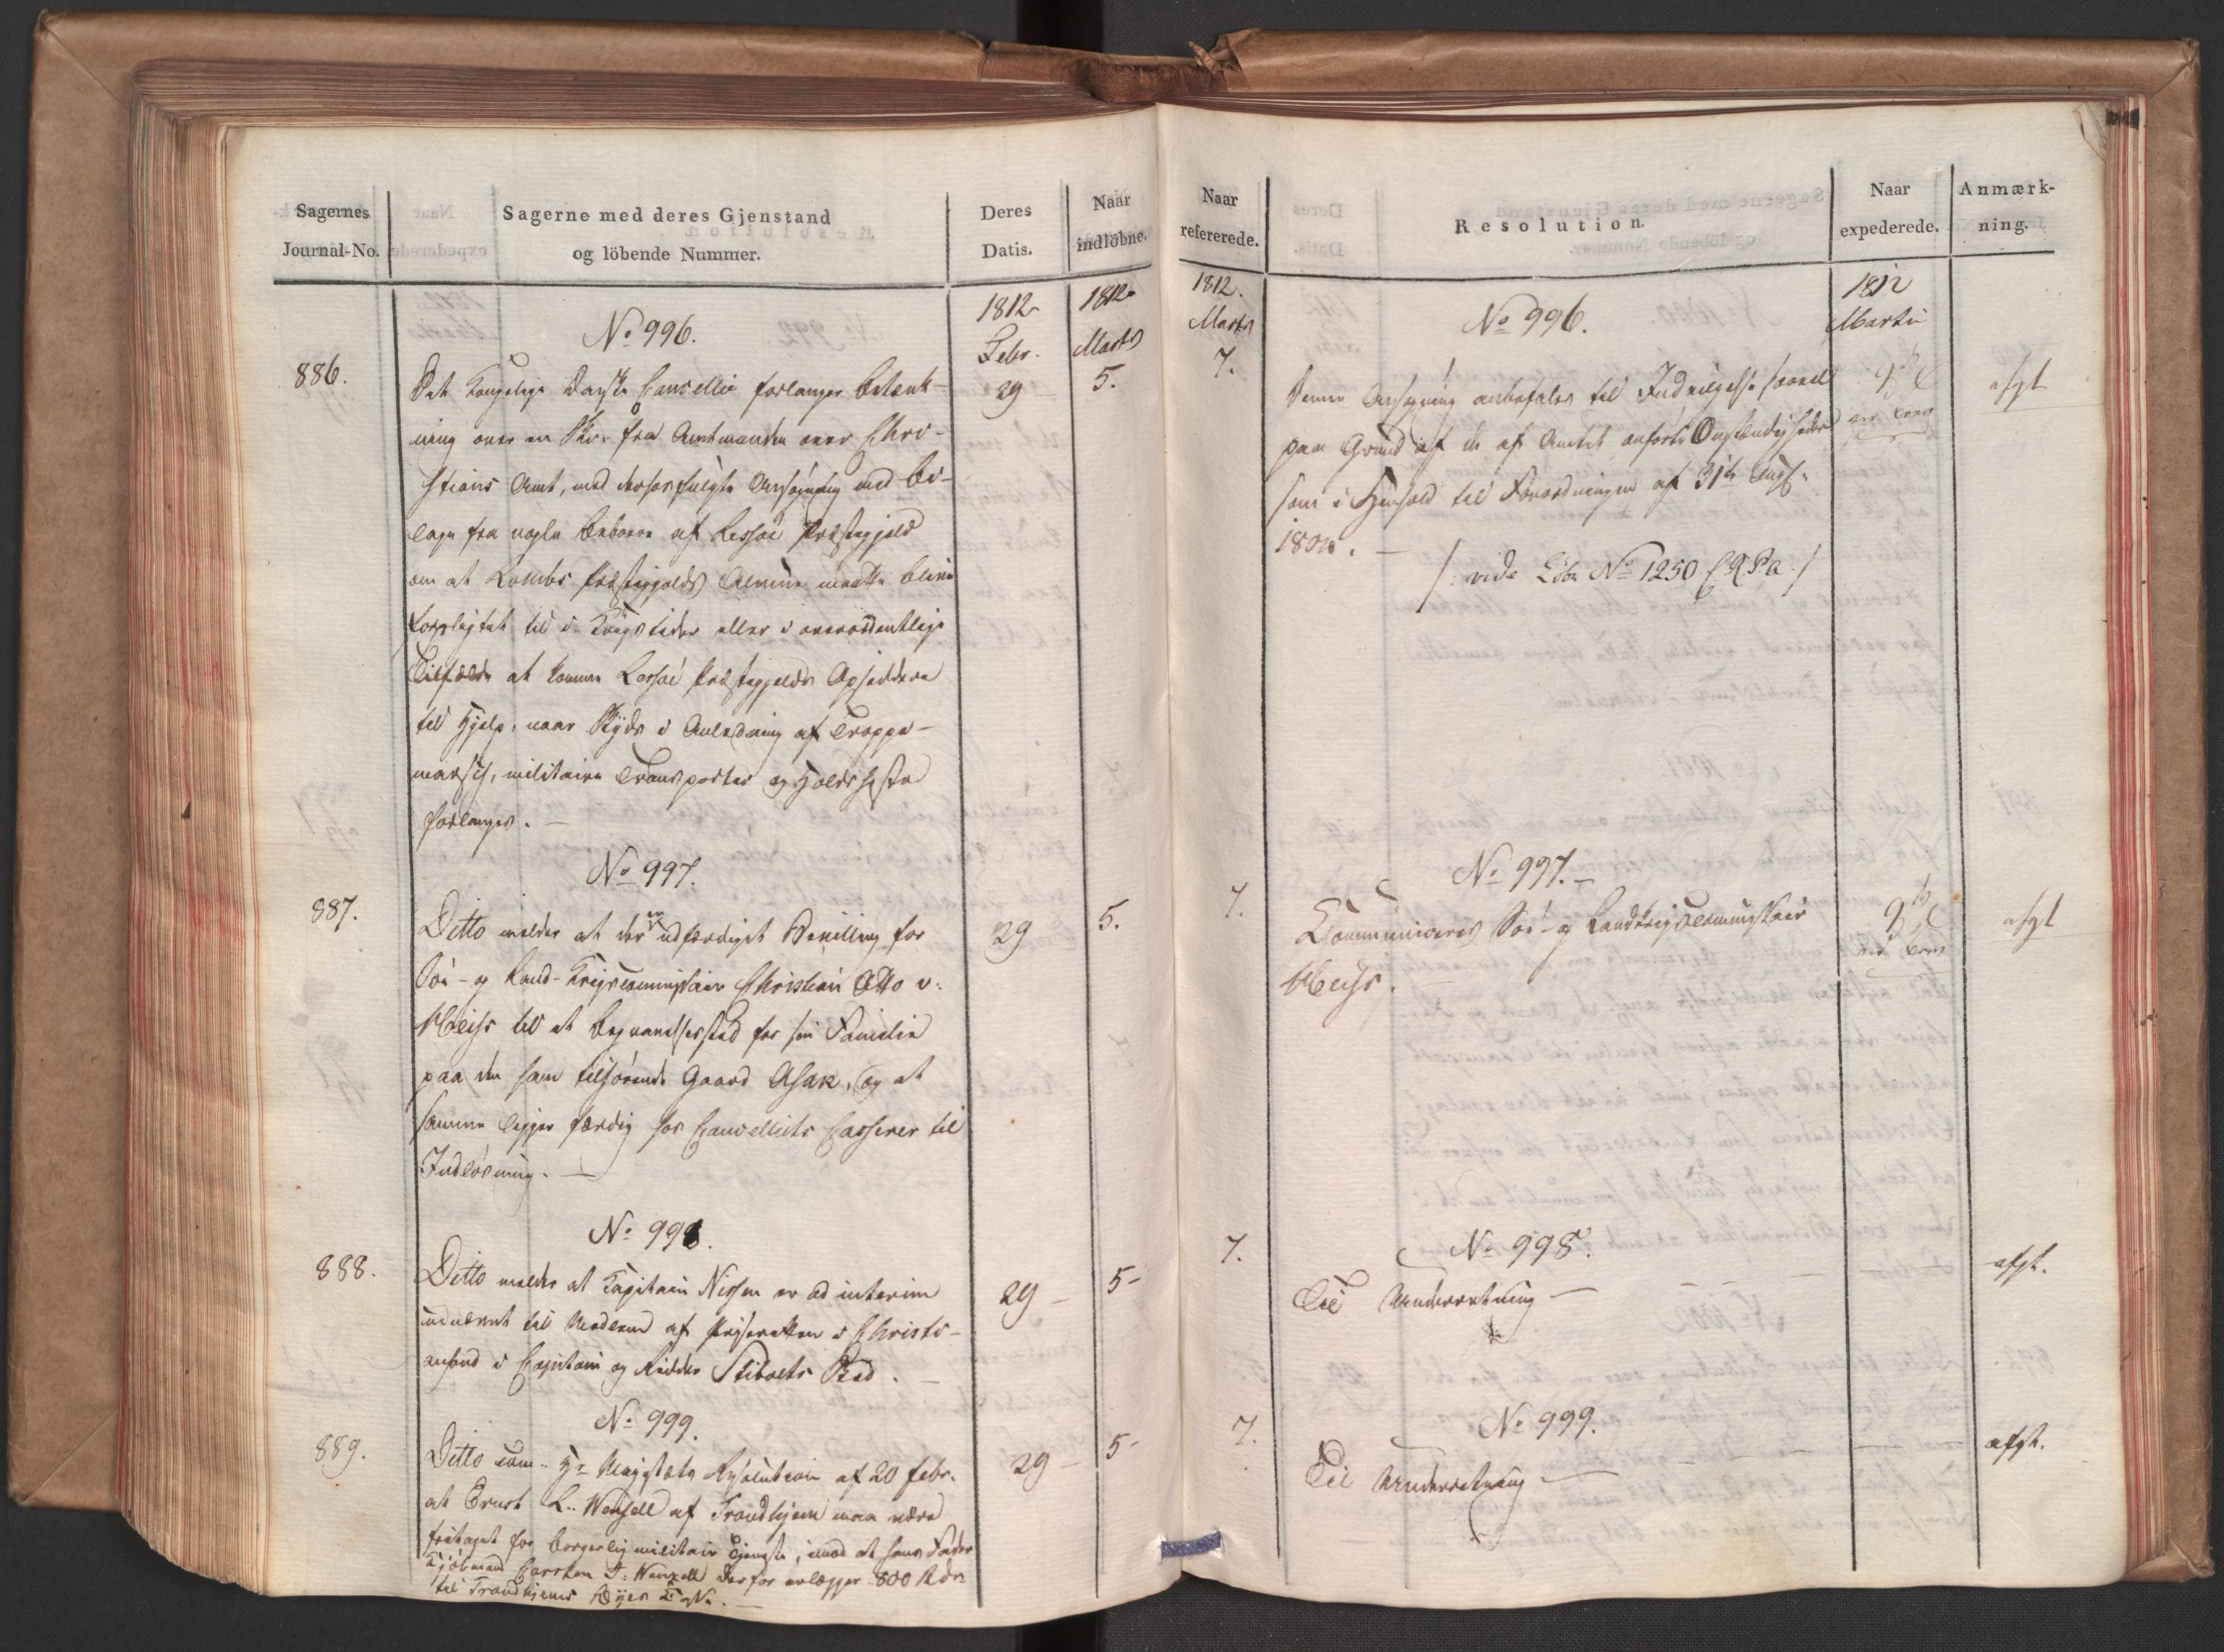 Sagernes
Journal-No.
Sagerne med deres Gjenstand
og löbende Nummer.
Deres
Datis.
Naar
indlöbne.
1812
Febr.
1812
Marts
No 996.
886.
29
5.
Det Kongelige Danske Cancellie forlanger Betænk-
ning over en Skr. fra Amtmanden over Chri-
stians Amt, med derhos fulgte Ansøgning med Bi-
lage fra nogle Beboere af Lessøe Præstegjeld
om at Lombs Præstegjelds Almue maatte blive
forpligtet til i Krigstider eller i overordentlige
Tilfælde at komme Lessøe Præstegjelds Opsiddere
til Hjelp, naar Skyds i Anledning af Troppe-
marsch, militaire Transporter og Holdsheste
forlanges. —
No 997.
887.
29
5.
Ditto melder at der er udfærdiget Bevilling for
Søe- og Land-Krigscommissair Christian Otto v:
Meiss til et Begravelsessted for sin Familie
paa den ham tilhørende Gaard Asak, og at
samme ligger færdig hos Cancelliets Casserer til
Indløsning. —
No 998.
888.
29 —
5-
Ditto melder at Capitain Nissen er ad interim
udnævnt til Medlem af Priseretten i Christi-
ansand i Capitain og Ridder Stibolts Sted. —
No 999.
889.
29 —
5-
Ditto com: Hs Majestæts Resolution af 20 febr.
at Ernst L.. Wensell af Trondhjem maa være
fritaget for borgerlig militair Tjeneste, imod at hans Fader
Kjøbmand Carsten T: Wenzell derfor erlægger 800 Rdr
til Trondhjems Byes
Naar
refererede.
Resolution.
Naar
expederede.
Anmærk-
ning.
1812.
Marts
1812
Martii
No 996.
7.
afgt
Denne Ansøgning anbefales til Indvilgelse saavel
paa Grund af de af Amtet anførte Omstændigheder
som i Henhold til Forordningen af 31te Aug.
. —
/: vide Liber No 1250 :/
No 997. —
7.
afgt
Communiceres Søe- og Landkrigscommissair
Meiss. —
No 998.
7.
afgt.
Til Underretning —
No 999.
7.
afgt.
Til Underretning —